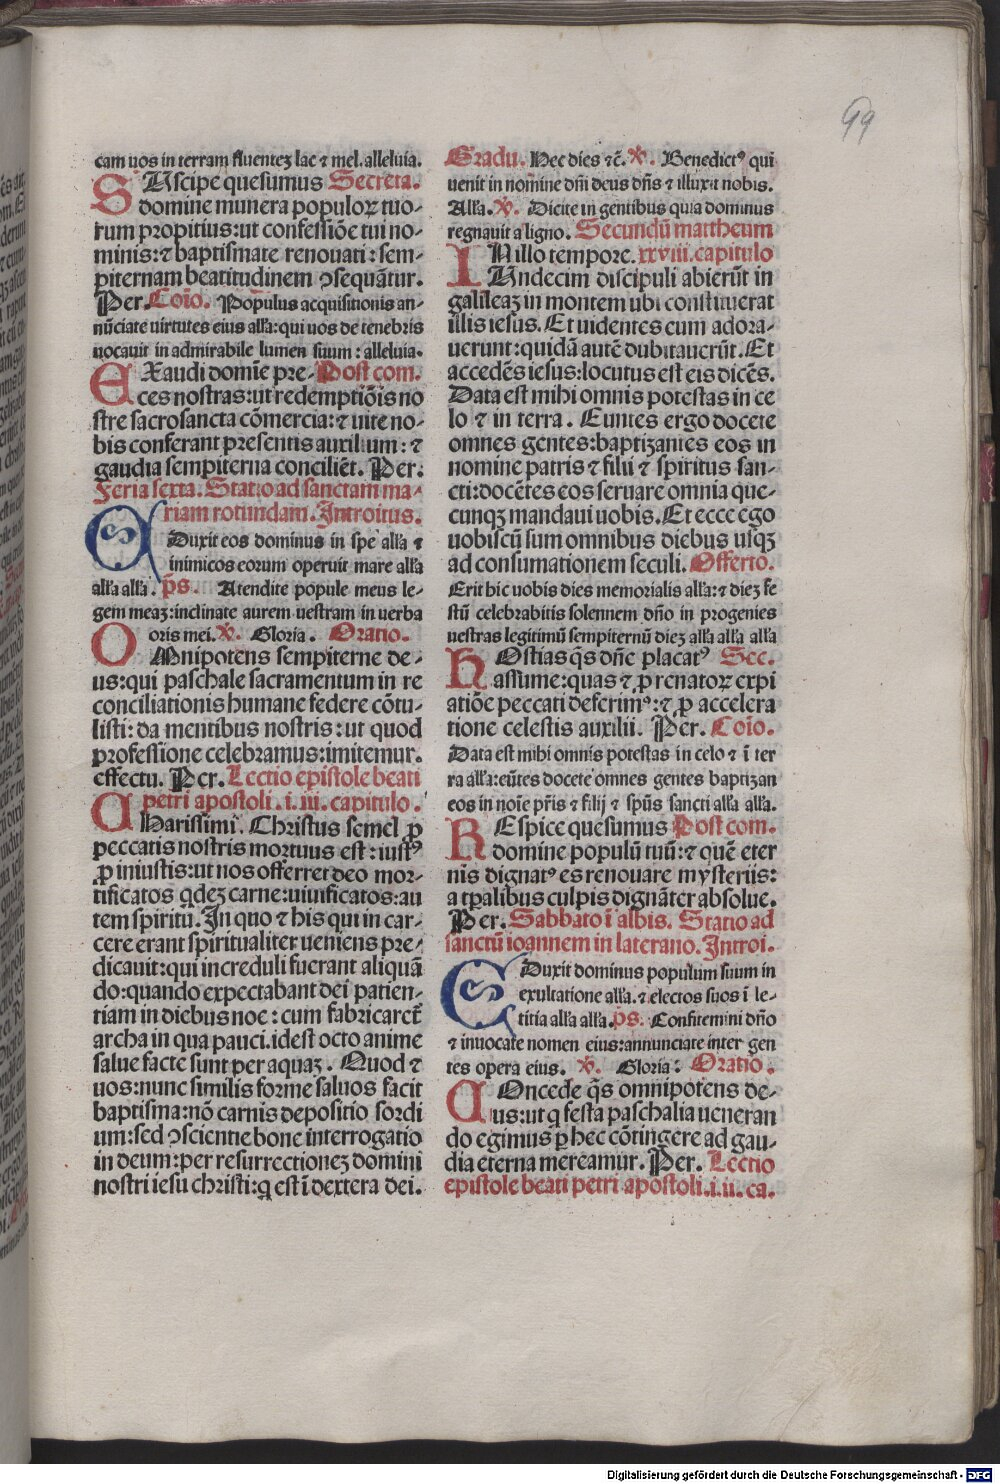 99
cam uos in terram fluenteʒ lac ⁊ mel. alleluia.
SUscipe quesumus Secreta.
domine munera populoꝝ tuo-
rum propitius: ut confessiõe tui no-
minis: ⁊ baptismate renouati: sem-
piternam beatitudinem ɔsequãtur.
Per. Coĩo. Populus acquisitionis an-
nũciate uirtutes eius alľa: qui uos de tenebris
uocauit in admirabile lumen suum: alleluia.
EXaudi domĩe pre- Post com.
ces nostras: ut redemptiõis no
stre sacrosancta cõmercia: ⁊ uite no-
bis conferant presentis auxilium: ⁊
gaudia sempiterna conciliẽt. Per.
Feria sexta. Statio ad sanctam ma-
riam rotundam. Introitus.
EDuxit eos dominus in spe alľa ⁊
inimicos eorum operuit mare alľa
alľa alľa. p̃s. Atendite popule meus le-
gem meaʒ: inclinate aurem uestram in uerba
oris mei. ℣. Gloria. Oratio.
OMnipotens sempiterne de-
us: qui paschale sacramentum in re
conciliationis humane federe cõtu-
listi: da mentibus nostris: ut quod
professione celebramus: imitemur.
effectu. Per. Lectio epistole beati
petri apostoli. i. iii. capitulo.
CHarissimi. Christus semel ꝓ
peccatis nostris mortuus est: iustꝰ
ꝓ iniustis: ut nos offerret deo mor-
tificatos qdeʒ carne: uiuificatos: au
tem spiritu. In quo ⁊ his qui in car-
cere erant spiritualiter ueniens pre-
dicauit: qui increduli fuerant aliquã
do: quando expectabant dei patien-
tiam in diebus noe: cum fabricaret̃
archa in qua pauci. idest octo anime
salue facte sunt per aquaʒ. Quod ⁊
uos: nunc similis forme saluos facit
baptisma: nõ carnis depositio sordi
um: sed ɔscientie bone interrogatio
in deum: per resurrectioneʒ domini
nostri iesu christi: q̃ est ĩ dextera dei.
Gradu. Hec dies ⁊c̃. ℣. Benedictꝰ qui
uenit in nomine dñi deus dñs ⁊ illuxit nobis.
Alľa. ℣. Dicite in gentibus quia dominus
regnauit a ligno. Secundũ mattheum
IN illo tempore. xxviii. capitulo
Undecim discipuli abierũt in
galileaʒ in montem ubi constituerat
illis iesus. Et uidentes eum adora-
uerunt: quidã autẽ dubitauerũt. Et
accedẽs iesus: locutus est eis dicẽs.
Data est mihi omnis potestas in ce
lo ⁊ in terra. Euntes ergo docete
omnes gentes: baptizantes eos in
nomine patris ⁊ filii ⁊ spiritus san-
cti: docẽtes eos seruare omnia que-
cunqʒ mandaui uobis. Et ecce ego
uobiscũ sum omnibus diebus usqʒ
ad consumationem seculi. Offerto.
Erit hic uobis dies memorialis alľa: ⁊ dieʒ fe
stũ celebrabitis solennem dño in progenies
uestras legitimũ sempiternũ dieʒ alľa alľa alľa
HOstias q̃s dñe placatꝰ Sec.
assume: quas ⁊ ꝓ renatoꝝ expi
atiõe peccati deferimꝰ: ⁊ ꝓ accelera
tione celestis auxilii. Per. Coĩo.
Data est mihi omnis potestas in celo ⁊ ĩ ter
ra alľa: eũtes docete omnes gentes baptizan
eos in noĩe p̃ris ⁊ filij ⁊ sp̃us sancti alľa alľa.
REspice quesumus Post com.
domine populũ tuũ: ⁊ quẽ eter
nis dignatꝰ es renouare mysteriis:
a tp̃alibus culpis dignãter absolue.
Per. Sabbato ĩ albis. Statio ad
sanctũ ioannem in laterano. Introi.
EDuxit dominus populum suum in
exultatione alľa. ⁊ electos suos ĩ le-
titia alľa alľa. p̃s. Confitemini dño
⁊ inuocate nomen eius: annunciate inter gen
tes opera eius. ℣. Gloria: Oratio.
COncede q̃s omnipotens de-
us: ut q festa paschalia ueneran
do egimus ꝑ hec cõtingere ad gau-
dia eterna mereamur. Per. Lectio
epistole beati petri apostoli. i. ii. ca.
Digitalisierung gefördert durch die Deutsche Forschungsgemeinschaft - DFG